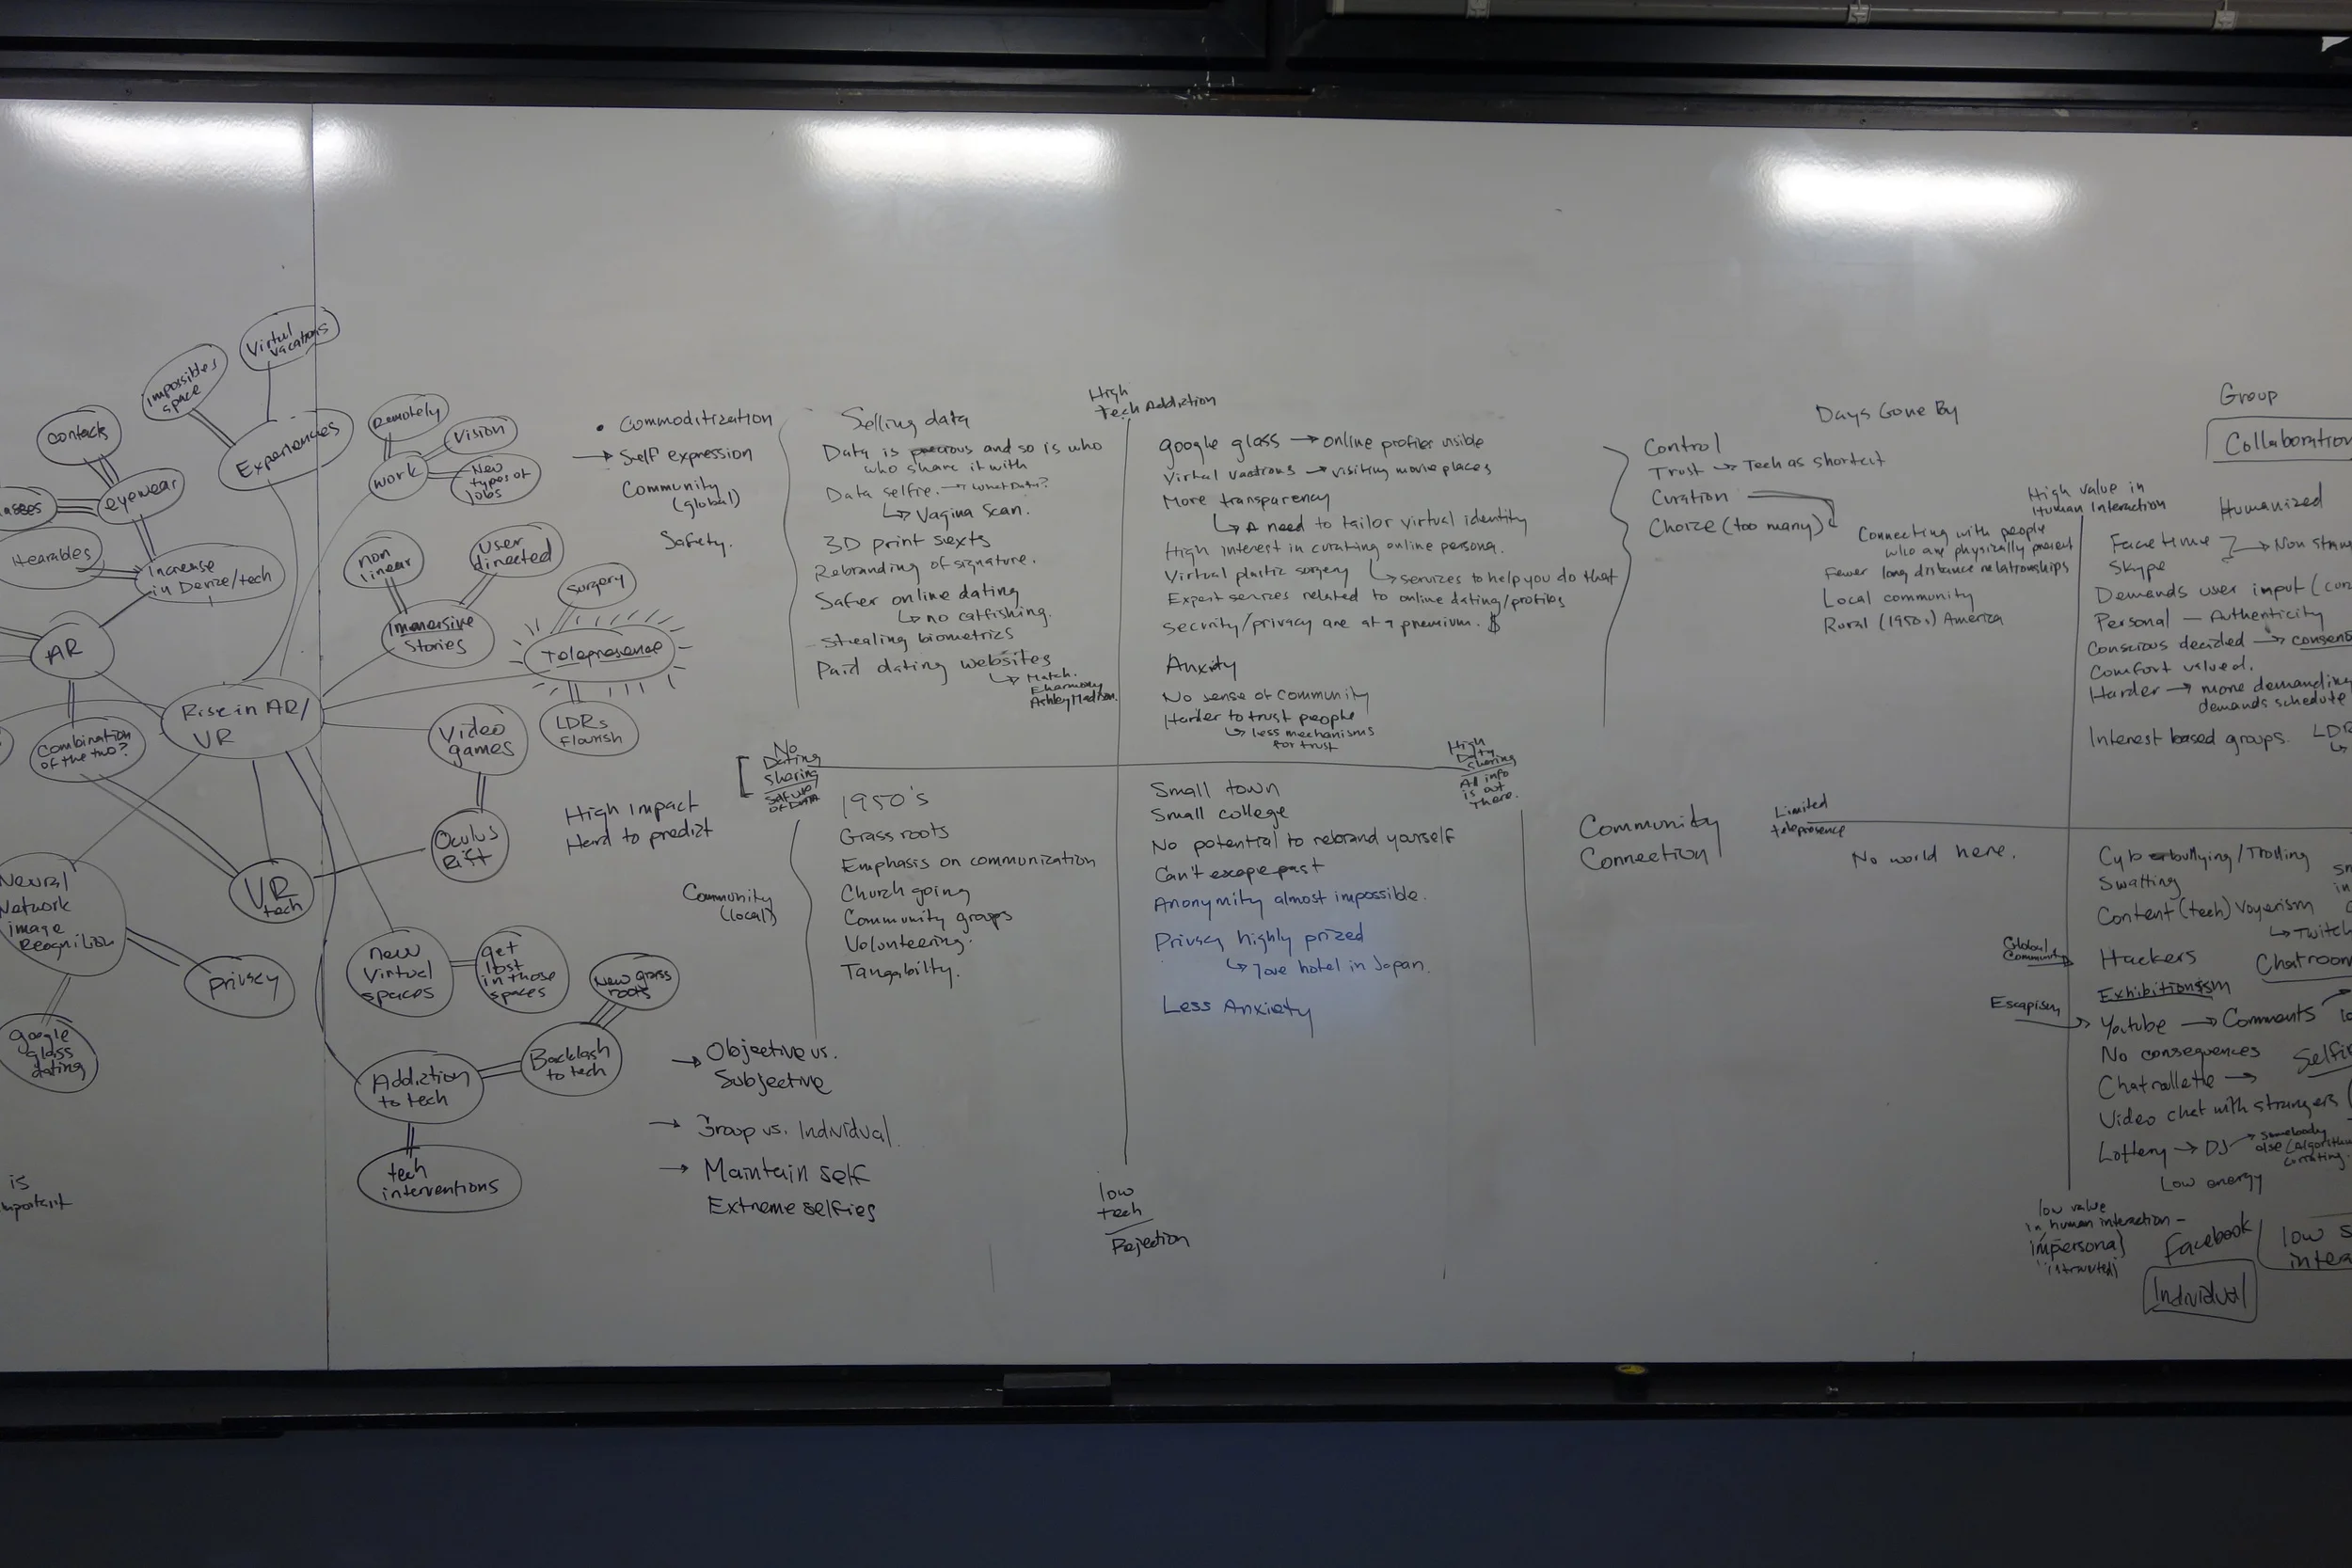 Virtual
vacations
Impossible
space
contacts
Experiences
eyewear
Hearables
Increase
in Device/tech
AR
Combination
of the two?
Rise in AR/
VR
Neural
Network
image
Recognition
privacy
google
glass
dating
is
important
Remotely
Vision
work
New
types of
jobs
non
linear
user
directed
Immersive
Stories
Surgery
Telepresence
LDRs
flourish
Video
games
Oculus
Rift
VR
tech
new
Virtual
spaces
get
lost
in those
spaces
New grass
roots
Backlash
to tech
Addiction
to tech
tech
interventions
• Commoditization
→ Self expression
Community
(global)
Safety.
High Impact
Hard to predict
Community
(local)
→ Objective vs.
Subjective
→ Group vs. Individual.
→ Maintain self
Extreme selfies
High
Tech Addiction
Selling data
Data is precious and so is who
who share it with
Data selfie. → what data?
↳ Vagina scan.
3D print sexts
Rebranding of signature.
Safer online dating
↳ no catfishing.
Stealing biometrics
Paid dating websites
↳ Match.
Eharmony
Ashley Madison.
google glass → online profiles visible
Virtual vactions → visiting movie places
More transparency
↳ A need to tailor virtual identity
High interest in curating online persona.
↳ services to help you do that
Virtual plastic surgery
Expert services related to online dating/profiles
Security/privacy are at a premium. $
Anxity
No sense of community
Harder to trust people
↳ less mechanisms
for trust
No
Dating
sharing
High
Data
sharing
All info
is out
there.
1950's
Grass roots
Emphasis on communication
Church going
Community groups
Volunteering.
Tangability.
Small town
Small college
No potential to rebrand yourself
Can't escape past
Anonymity almost impossible.
Privacy highly prized
↳ love hotel in Japan.
Less Anxiety
low
tech
Rejection
Control
Trust → Tech as shortcut
Curation
Choice (too many)
Days Gone By
Connecting with people
who are physically present
Fewer long distance relationships
Local community
Rural (1950s) America
Community
Connection
Limited
telepresence
No world here.
Group
Collaboration
High value in
Human Interaction
Humanized
Facetime
Skype
→ Non
Demands user input
Personal — Authenticity
Conscious decided →
Comfort valued.
Harder → more demanding
demands schedule
Interest based groups.
Cyberbullying/Trolling
Swatting
Content (tech) Voyerism
↳ Twitch
Global
Community
Hackers
Chatroom
Exhibitionism
Escapism
Youtube → Comments
No consequences
Chatroullette →
Video chat with strangers
Lottery → DJ → somebody
else (Algorithm
curating.
Low energy
low value
in human interaction -
impersonal
Facebook
low
Individual